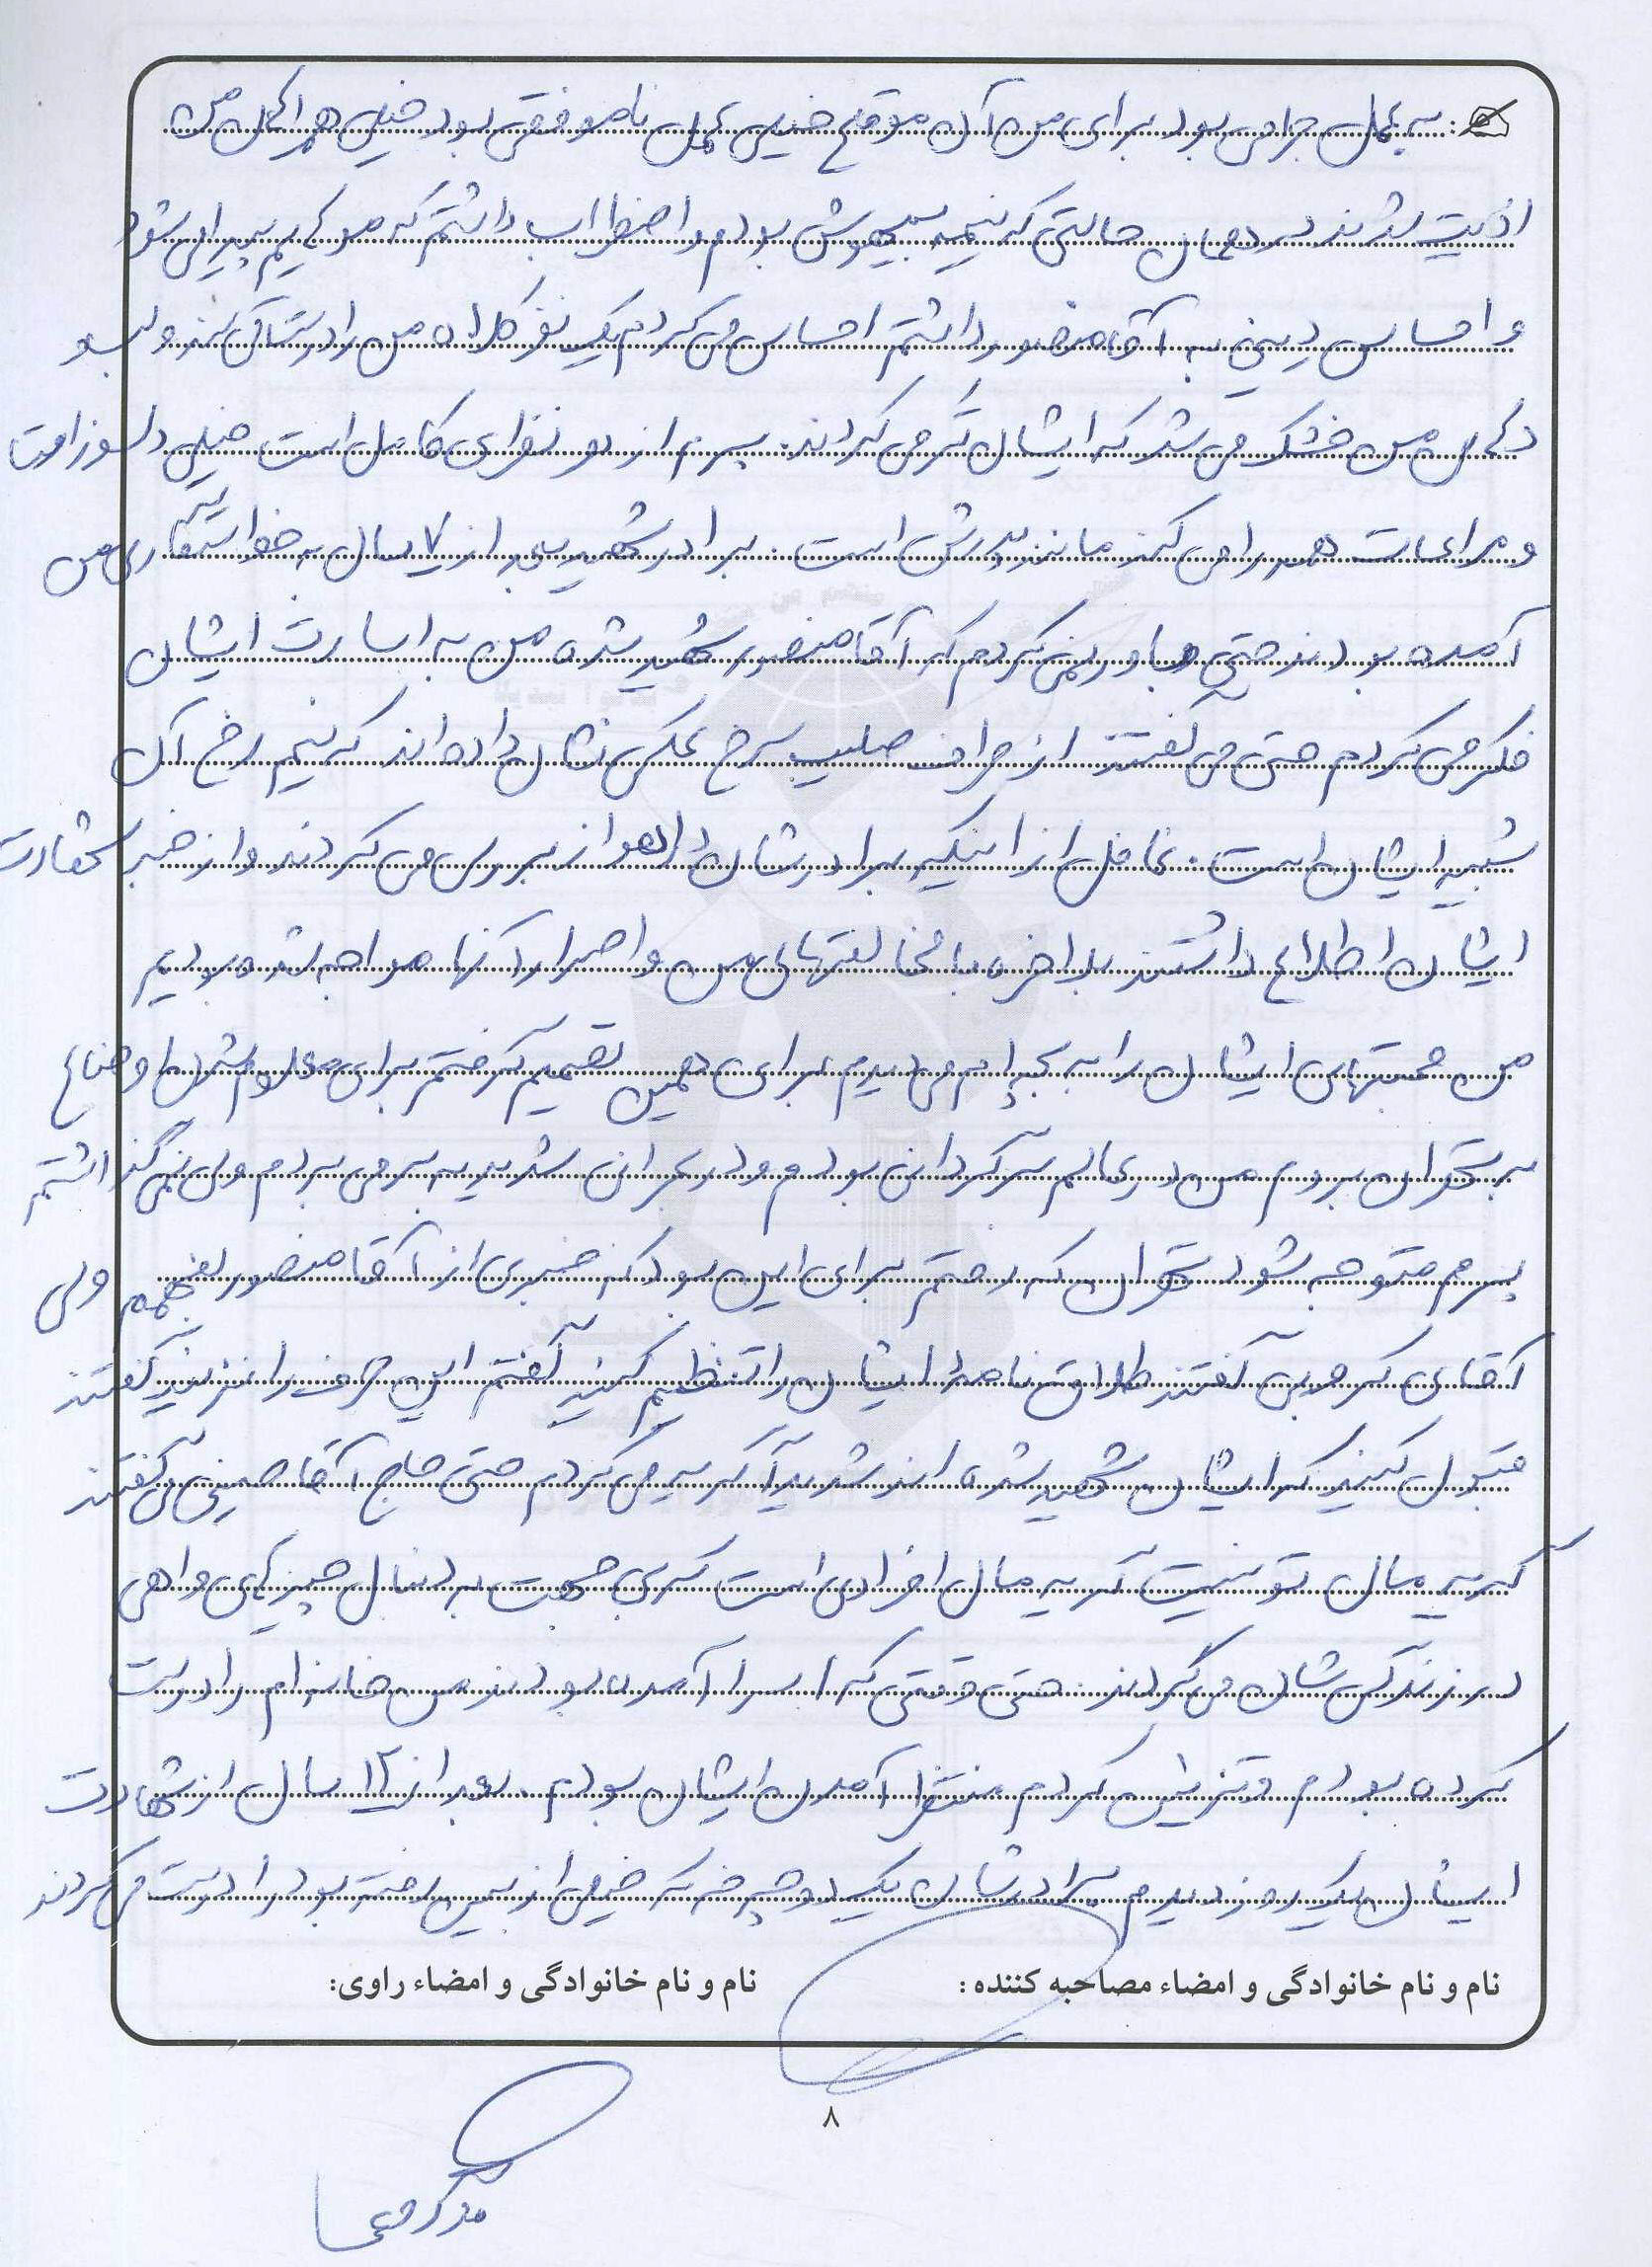 به عمل جراحی بود برای من آن موقع خیلی عمل ناموفقی بود خیلی همراهان من
اذیت شدند در همان حالتی که نیمه بیهوش بودم و اضطراب داشتم که موهایم پیدا می شود
و احساس دینی به آقا منصور داشتم احساس می کردم یک نفر کلاه من را درست می کند و لب و
دهان من خشک می شد که ایشان تر می کردند. پسرم از هر نظرای کامل است خیلی دلسوز است
و مراعات همه را می کند مانند پدرش است. برادر شهید بعد از ۷ سال به خواستگاری من
آمده بودند حتی باور نمی کردم که آقا منصور شهید شده من به اسارت ایشان
فکر می کردم حتی می گفتند از طرف صلیب سرخ عکس نشان داده اند که نیم رخ آن
شبیه ایشان است. غافل از اینکه برادرشان در اهواز بررسی می کردند و از خبر شهادت
ایشان اطلاع داشتند بلاخره با مخالفتهای من و اصرار آنها مواجه شده بودیم
من محبتهای ایشان را به بچه ام می دیدم برای همین تصمیم گرفتم برای معلوم شدن اوضاع
به تهران بروم من در عالم سرگردانی بودم و در بحرانی شدید به سر می بردم ولی نمی گذاشتم
پسرم متوجه شود تهران که رفتم برای این بود که خبری از آقا منصور بفهمم ولی
آقای کروبی گفتند طلاق نامه ایشان را تنظیم کنید گفتم این حرف را نزنید گفتند
قبول کنید که ایشان شهید شده اند شدیداً گریه می کردم حتی حاج آقا می گفتند
گریه مال تو نیست گریه مال افرادی است که بی جهت به دنبال چیزهای واهی
در زندگی شان می گردند. حتی وقتی که اسرا آمده بودند من خانه ام را درست
کرده بودم و تزئین کردم منتظر آمدن ایشان بودم. بعد از ۱۲ سال از شهادت
ایشان یک روز دیدم برادرشان یک دوچرخه که خیلی از بین رفته بود را درست می کردند
نام و نام خانوادگی و امضاء مصاحبه کننده: نام و نام خانوادگی و امضاء راوی:
۸